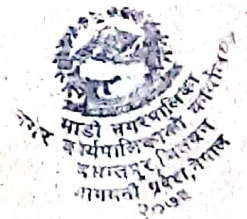 माडी नगरपालिका
नगर कार्यपालिकाको कार्यालय
बसन्तपुर, चितवन
बागमती प्रदेश, नेपाल
२०७३